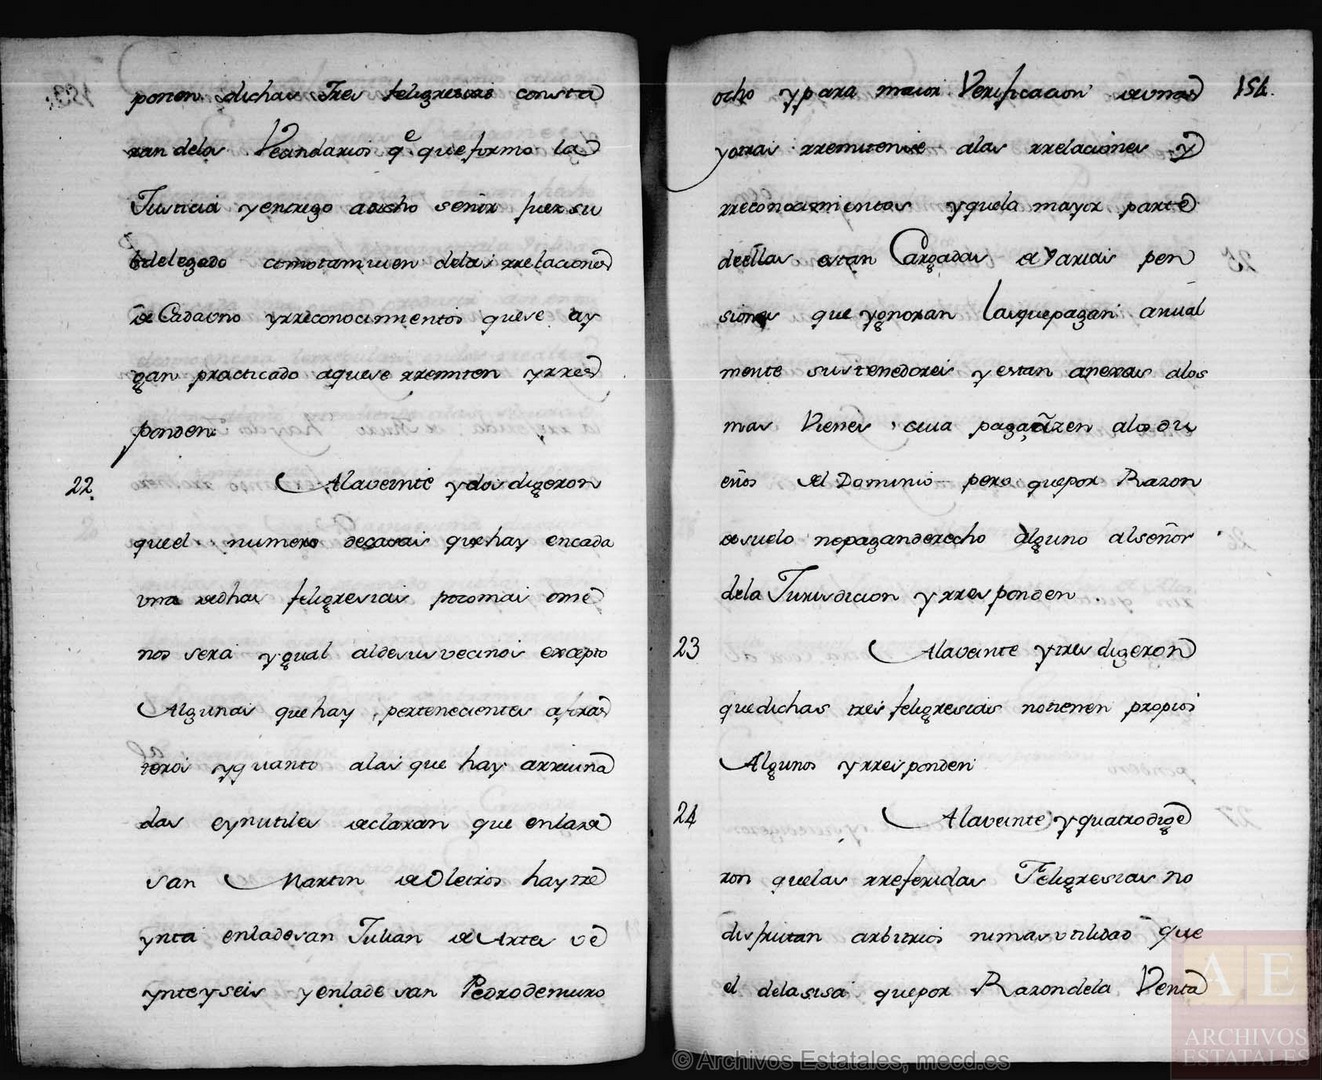 ponen dichas Tres feligresias consta
ran delos Veandarios q.e que formo la
Justicia yentrego adicho señor Juez su
bdelegado comotamvien delas rrelaciones
de Cadauno yrreconocimientos quese ay
gan practicado aquese rremiten yrres
ponden
22 Alaveinte ydos digeron
queel numero decasas quehay encada
vna dedhas feligresias pocomas ome
nos sera ygual aldesusvecinos excepto
Algunas que hay pertenecientes aforas
teros yquanto alas que hay arruina
das eynutiles declaran que enlade
san Martin deOleiros haytre
ynta enladesan Julian deArtes ve
ynteyseis yenlade san Pedrodemuro
ocho ypara maior Verificacion deunas 154.
yotras rremitense alas rrelaciones y
rreconocimientos yquela mayor parte
deellas estan Cargadas de Varias pen
siones que ygnoran lasquepagan anual
mente sustenedores yestan anexas alos
mas Vienes cuia paga azen alosdu
eños del Dominio pero quepor Razon
desuelo nopaganderecho alguno alseñor
dela Jurisdicion yrresponden.
23 Alaveinte ytres digeron
quedichas tres feligresias notienen propios
Algunos yrresponden
24 Alaveinte yquatrodige
ron quelas rreferidas Feligresias no
disfrutan arbitrios nimasvtilidad que
el delasisa quepor Razondela Venta
© Archivos Estatales, mecd.es
AE
ARCHIVOS
ESTATALES